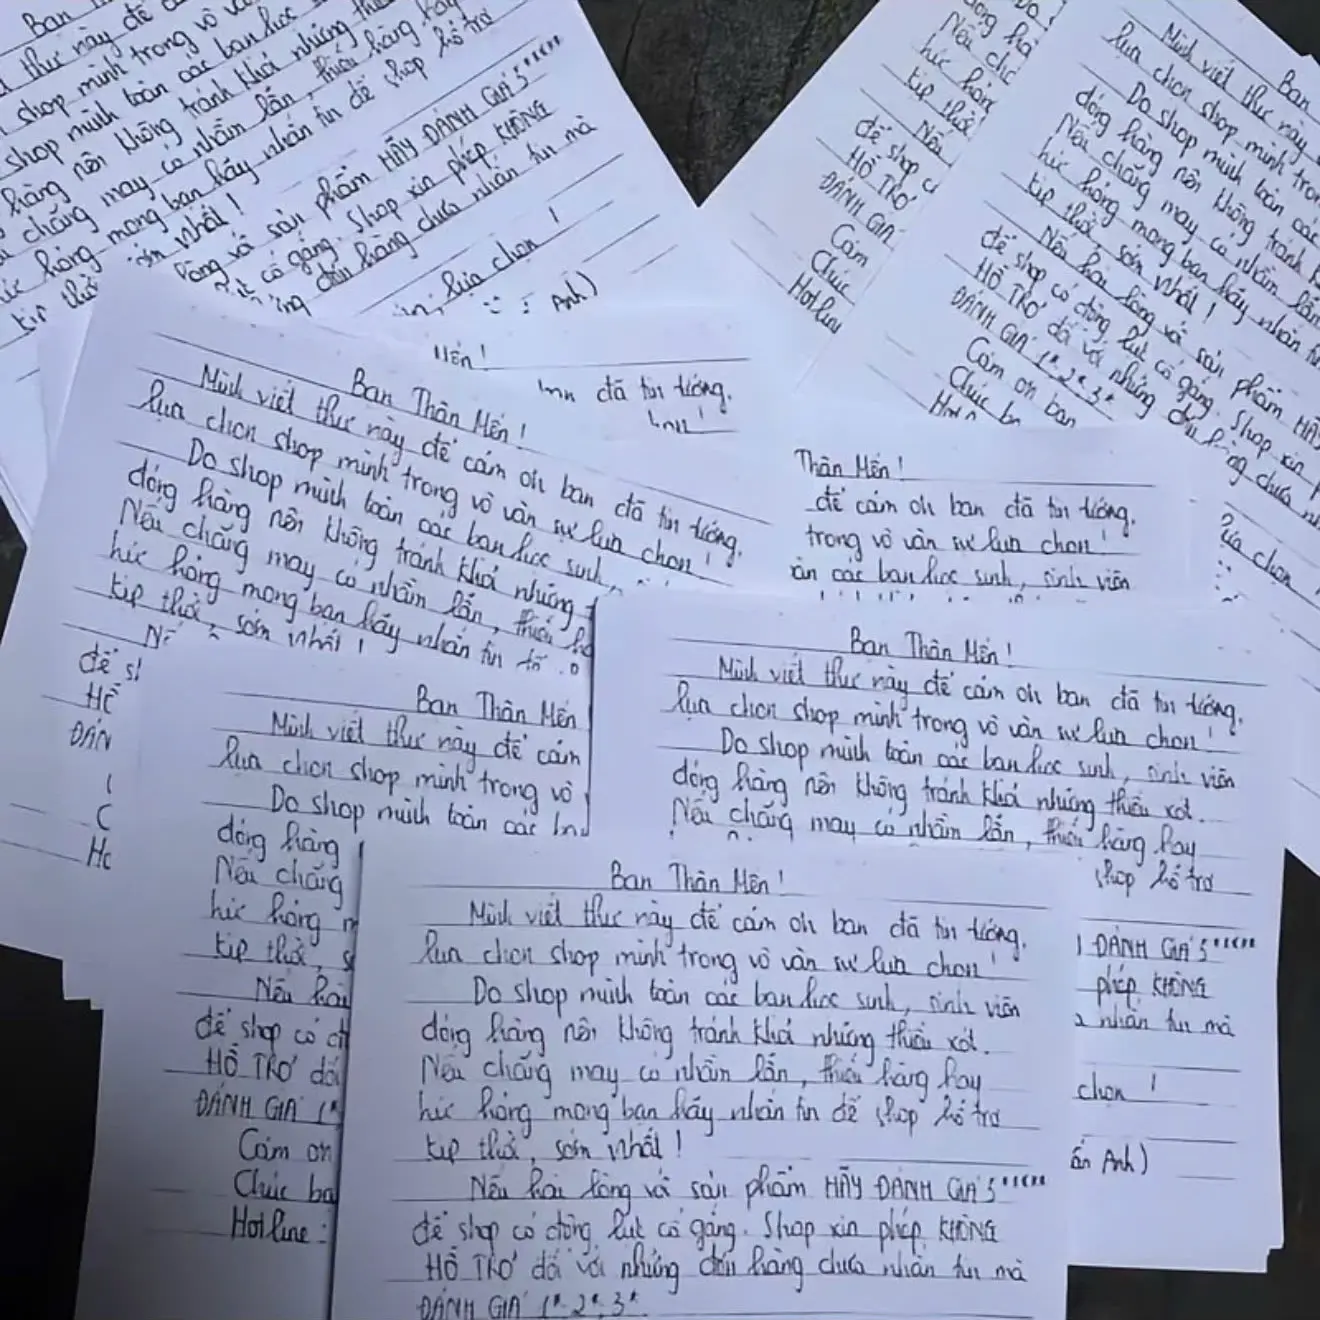 Bạn Thân Mến!
Mình viết thư này để cảm ơn bạn đã tin tưởng,
lựa chọn shop mình trong vô vàn sự lựa chọn!
Do shop mình toàn các bạn học sinh, sinh viên
đóng hàng nên không tránh khỏi những thiếu xót.
Nếu chẳng may có nhầm lẫn, thiếu hàng hay
húc hỏng mong bạn hãy nhắn tin để shop hỗ trợ
kịp thời, sớm nhất!
Nếu hài lòng với sản phẩm HÃY ĐÁNH GIÁ 5*****
để shop có động lực cố gắng. Shop xin phép KHÔNG
HỖ TRỢ đối với những đơn hàng chưa nhắn tin mà
ĐÁNH GIÁ 1*, 2*, 3*
Bạn Thân Mến!
Mình viết thư này để cảm ơn bạn đã tin tưởng,
lựa chọn shop mình trong vô vàn sự lựa chọn!
Do shop mình toàn các bạn học sinh, sinh viên
đóng hàng nên không tránh khỏi những thiếu xót.
Nếu chẳng may có nhầm lẫn, thiếu hàng hay
shop hỗ trợ
ĐÁNH GIÁ 5*****
phép KHÔNG
nhắn tin mà
chọn!
Anh)
Bạn Thân Mến
Mình viết thư này để cảm
lựa chọn shop mình trong vô
Do shop mình toàn các
đóng hàng
Nếu chẳng
húc hỏng
kịp thời,
Nếu hài
để shop có
HỖ TRỢ đối
ĐÁNH GIÁ 1*
Cảm ơn
Chúc
Hotline:
Bạn Thân Mến!
Mình viết thư này để cảm ơn bạn đã tin tưởng,
lựa chọn shop mình trong vô vàn sự lựa chọn!
Do shop mình toàn các bạn học sinh,
đóng hàng nên không tránh khỏi những
Nếu chẳng may có nhầm lẫn, thiếu
húc hỏng mong bạn hãy nhắn tin
kịp thời, sớm nhất!
để
HỖ
Thân Mến!
để cảm ơn bạn đã tin tưởng,
trong vô vàn sự lựa chọn!
các bạn học sinh, sinh viên
Mến!
đã tin tưởng,
thư này để
shop mình trong vô
shop mình toàn các bạn học
hàng nên không tránh khỏi những
chẳng may có nhầm lẫn, thiếu hàng hay
hỏng mong bạn hãy nhắn tin để shop hỗ trợ
nhất!
lòng với sản phẩm HÃY ĐÁNH GIÁ 5*****
cố gắng. Shop xin phép KHÔNG
đơn hàng chưa nhắn tin mà
lựa chọn!
Anh)
Bạn
Mình viết thư này
lựa chọn shop mình
Do shop mình toàn các
đóng hàng nên không tránh
Nếu chẳng may có nhầm lẫn
húc hỏng mong bạn hãy nhắn tin
kịp thời, sớm nhất!
Nếu hài lòng với sản phẩm
để shop có động lực cố gắng. Shop xin
HỖ TRỢ đối với những đơn hàng chưa
ĐÁNH GIÁ 1*, 2*, 3*
Cảm ơn bạn
Chúc
lựa chọn
kịp thời
Nếu
để shop
HỖ TRỢ
ĐÁNH GIÁ
Cảm
Chúc
Hotline